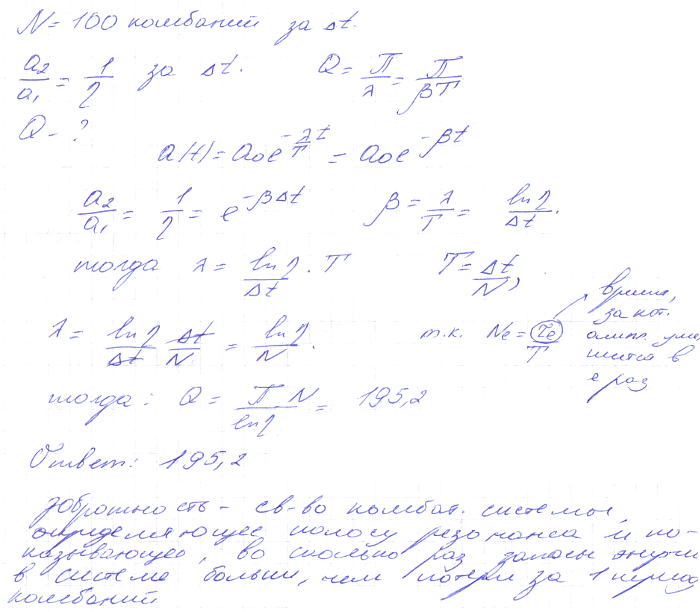 N = 100 колебаний за Δt.
a₂/a₁ = 1/η за Δt. Q = П/λ = П/βT
Q - ?
a(t) = a₀e^(-λt/T) = a₀e^(-βt)
a₂/a₁ = 1/η = e^(-βΔt) β = λ/T = ln η/Δt.
тогда λ = ln η/Δt · T T = Δt/N,
λ = ln η/Δt · Δt/N = ln η/N. т.к. Ne = τe/T
время,
за кот.
ампл. уме
ншится в
e раз
тогда: Q = П N/ln η = 195,2
Ответ: 195,2
Добротность - св-во колебат. системы,
определяющее полосу резонанса и по-
казывающее, во сколько раз запасы энергии
в системе больше, чем потери за 1 период
колебаний